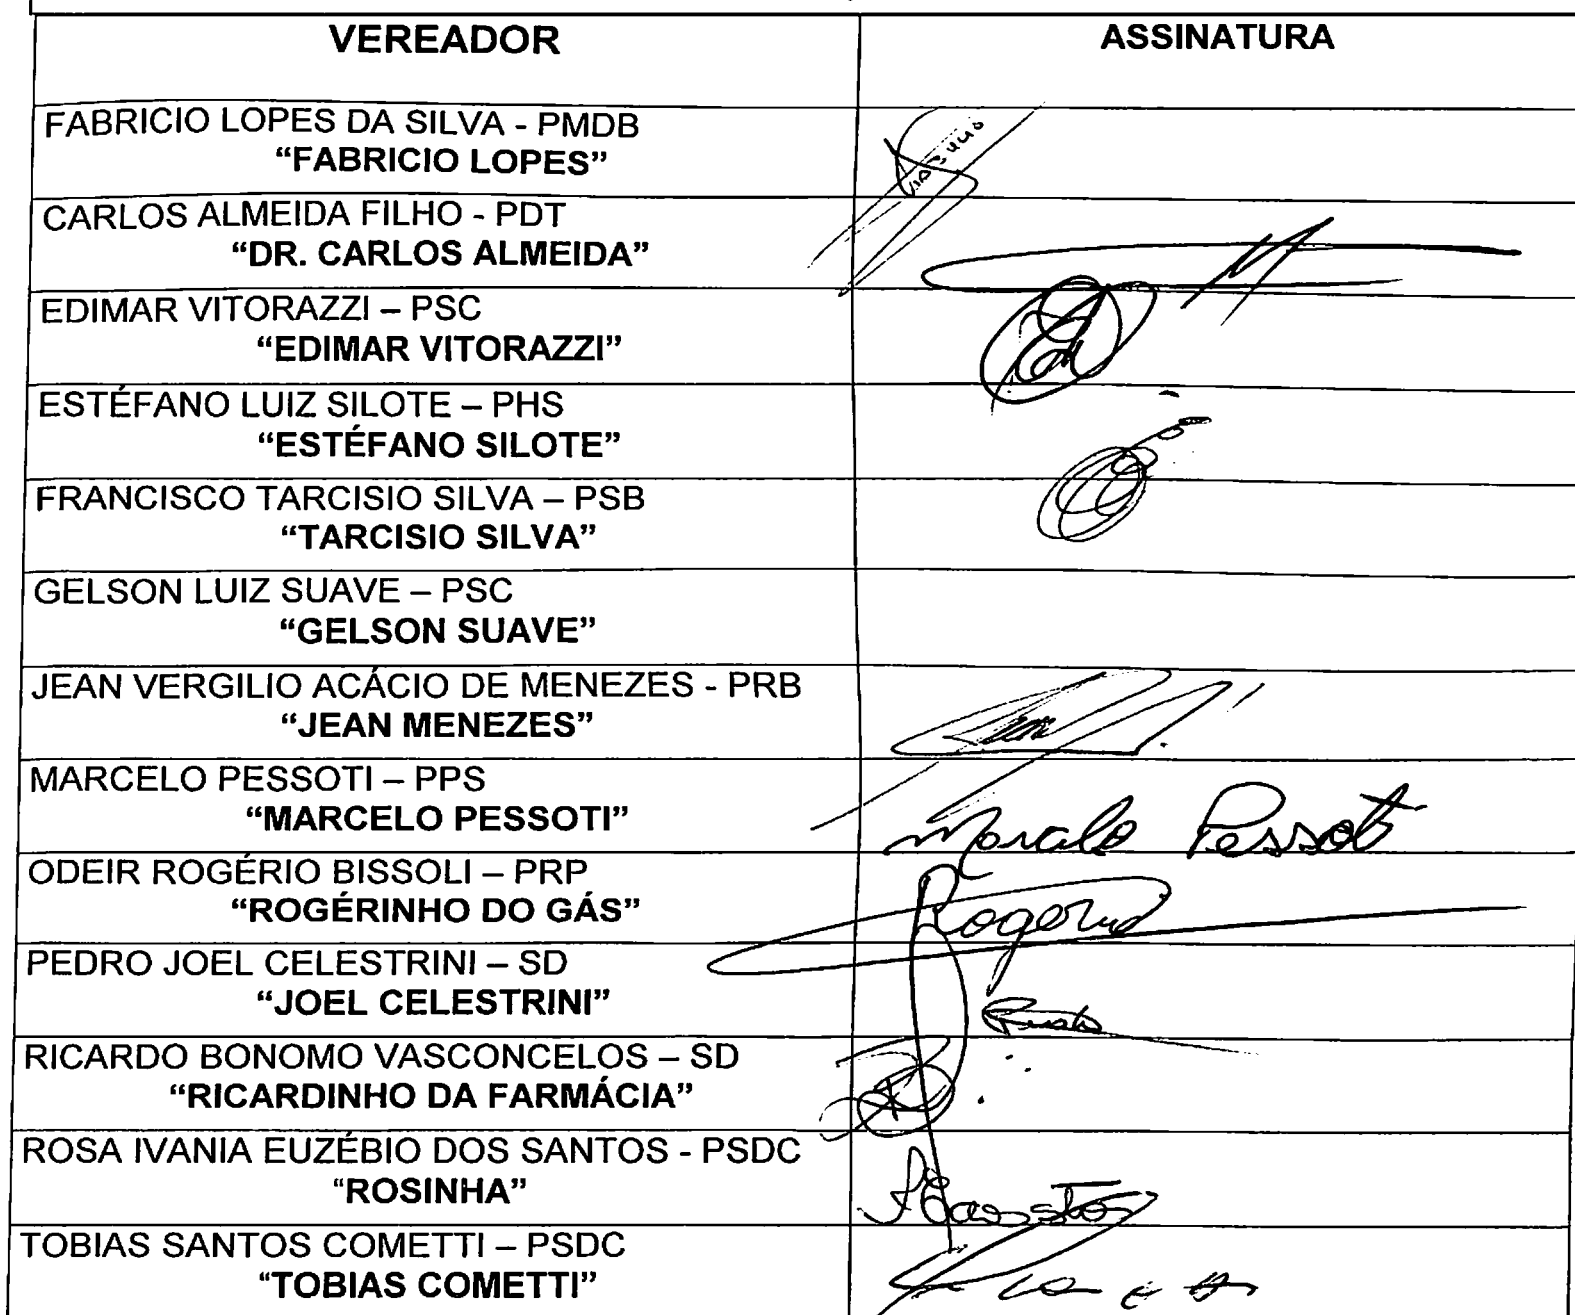 VEREADOR ASSINATURA
FABRICIO LOPES DA SILVA - PMDB
“FABRICIO LOPES”
CARLOS ALMEIDA FILHO - PDT
“DR. CARLOS ALMEIDA”
EDIMAR VITORAZZI – PSC
“EDIMAR VITORAZZI”
ESTÉFANO LUIZ SILOTE – PHS
“ESTÉFANO SILOTE”
FRANCISCO TARCISIO SILVA – PSB
“TARCISIO SILVA”
GELSON LUIZ SUAVE – PSC
“GELSON SUAVE”
JEAN VERGILIO ACÁCIO DE MENEZES - PRB
“JEAN MENEZES”
MARCELO PESSOTI – PPS
“MARCELO PESSOTI” Marcelo Pessoti
ODEIR ROGÉRIO BISSOLI – PRP
“ROGÉRINHO DO GÁS”
PEDRO JOEL CELESTRINI – SD
“JOEL CELESTRINI”
RICARDO BONOMO VASCONCELOS – SD
“RICARDINHO DA FARMÁCIA”
ROSA IVANIA EUZÉBIO DOS SANTOS - PSDC
“ROSINHA”
TOBIAS SANTOS COMETTI – PSDC
“TOBIAS COMETTI”